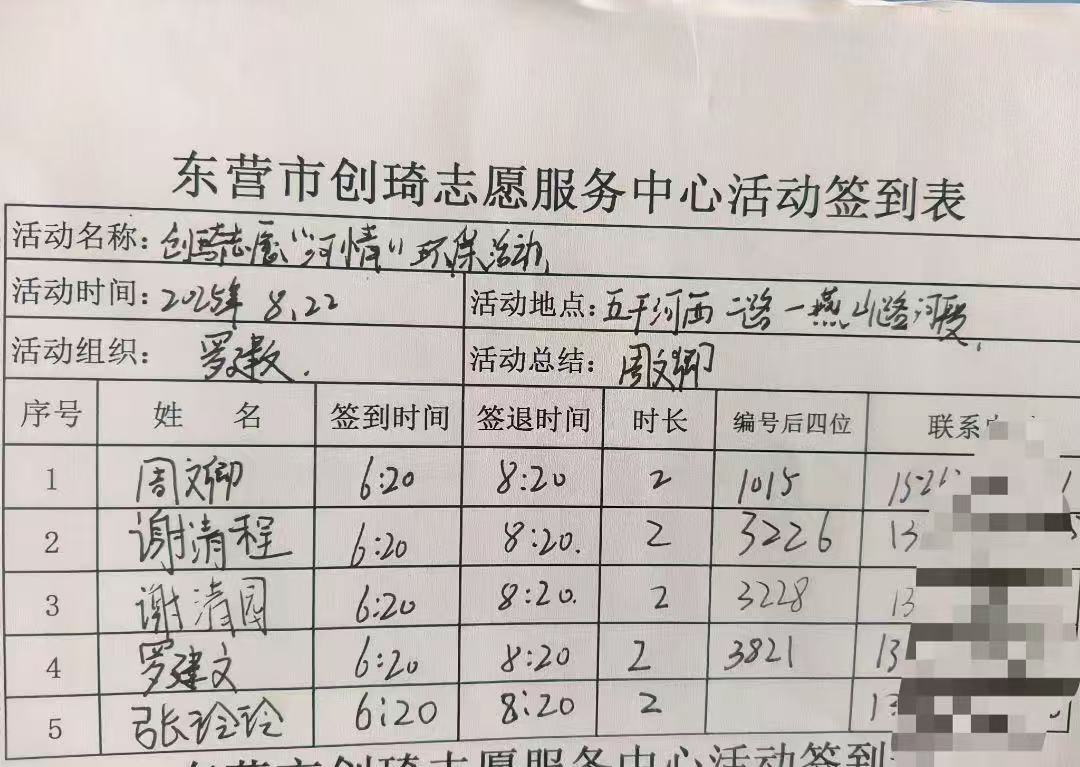 东营市创琦志愿服务中心活动签到表
活动名称：创琦志愿“河情”环保活动
活动时间：2025年 8.22 活动地点：五干河西二路一燕山路河段.
活动组织：罗建文. 活动总结：周文卿
序号 姓 名 签到时间 签退时间 时长 编号后四位 联系
1 周文卿 6:20 8:20 2 1015 152
2 谢清程 6:20 8:20. 2 3226 13
3 谢清园 6:20 8:20. 2 3228 13
4 罗建文 6:20 8:20 2 3821 13
5 张玲玲 6:20 8:20 2 13
东营市创琦志愿服务中心活动签到